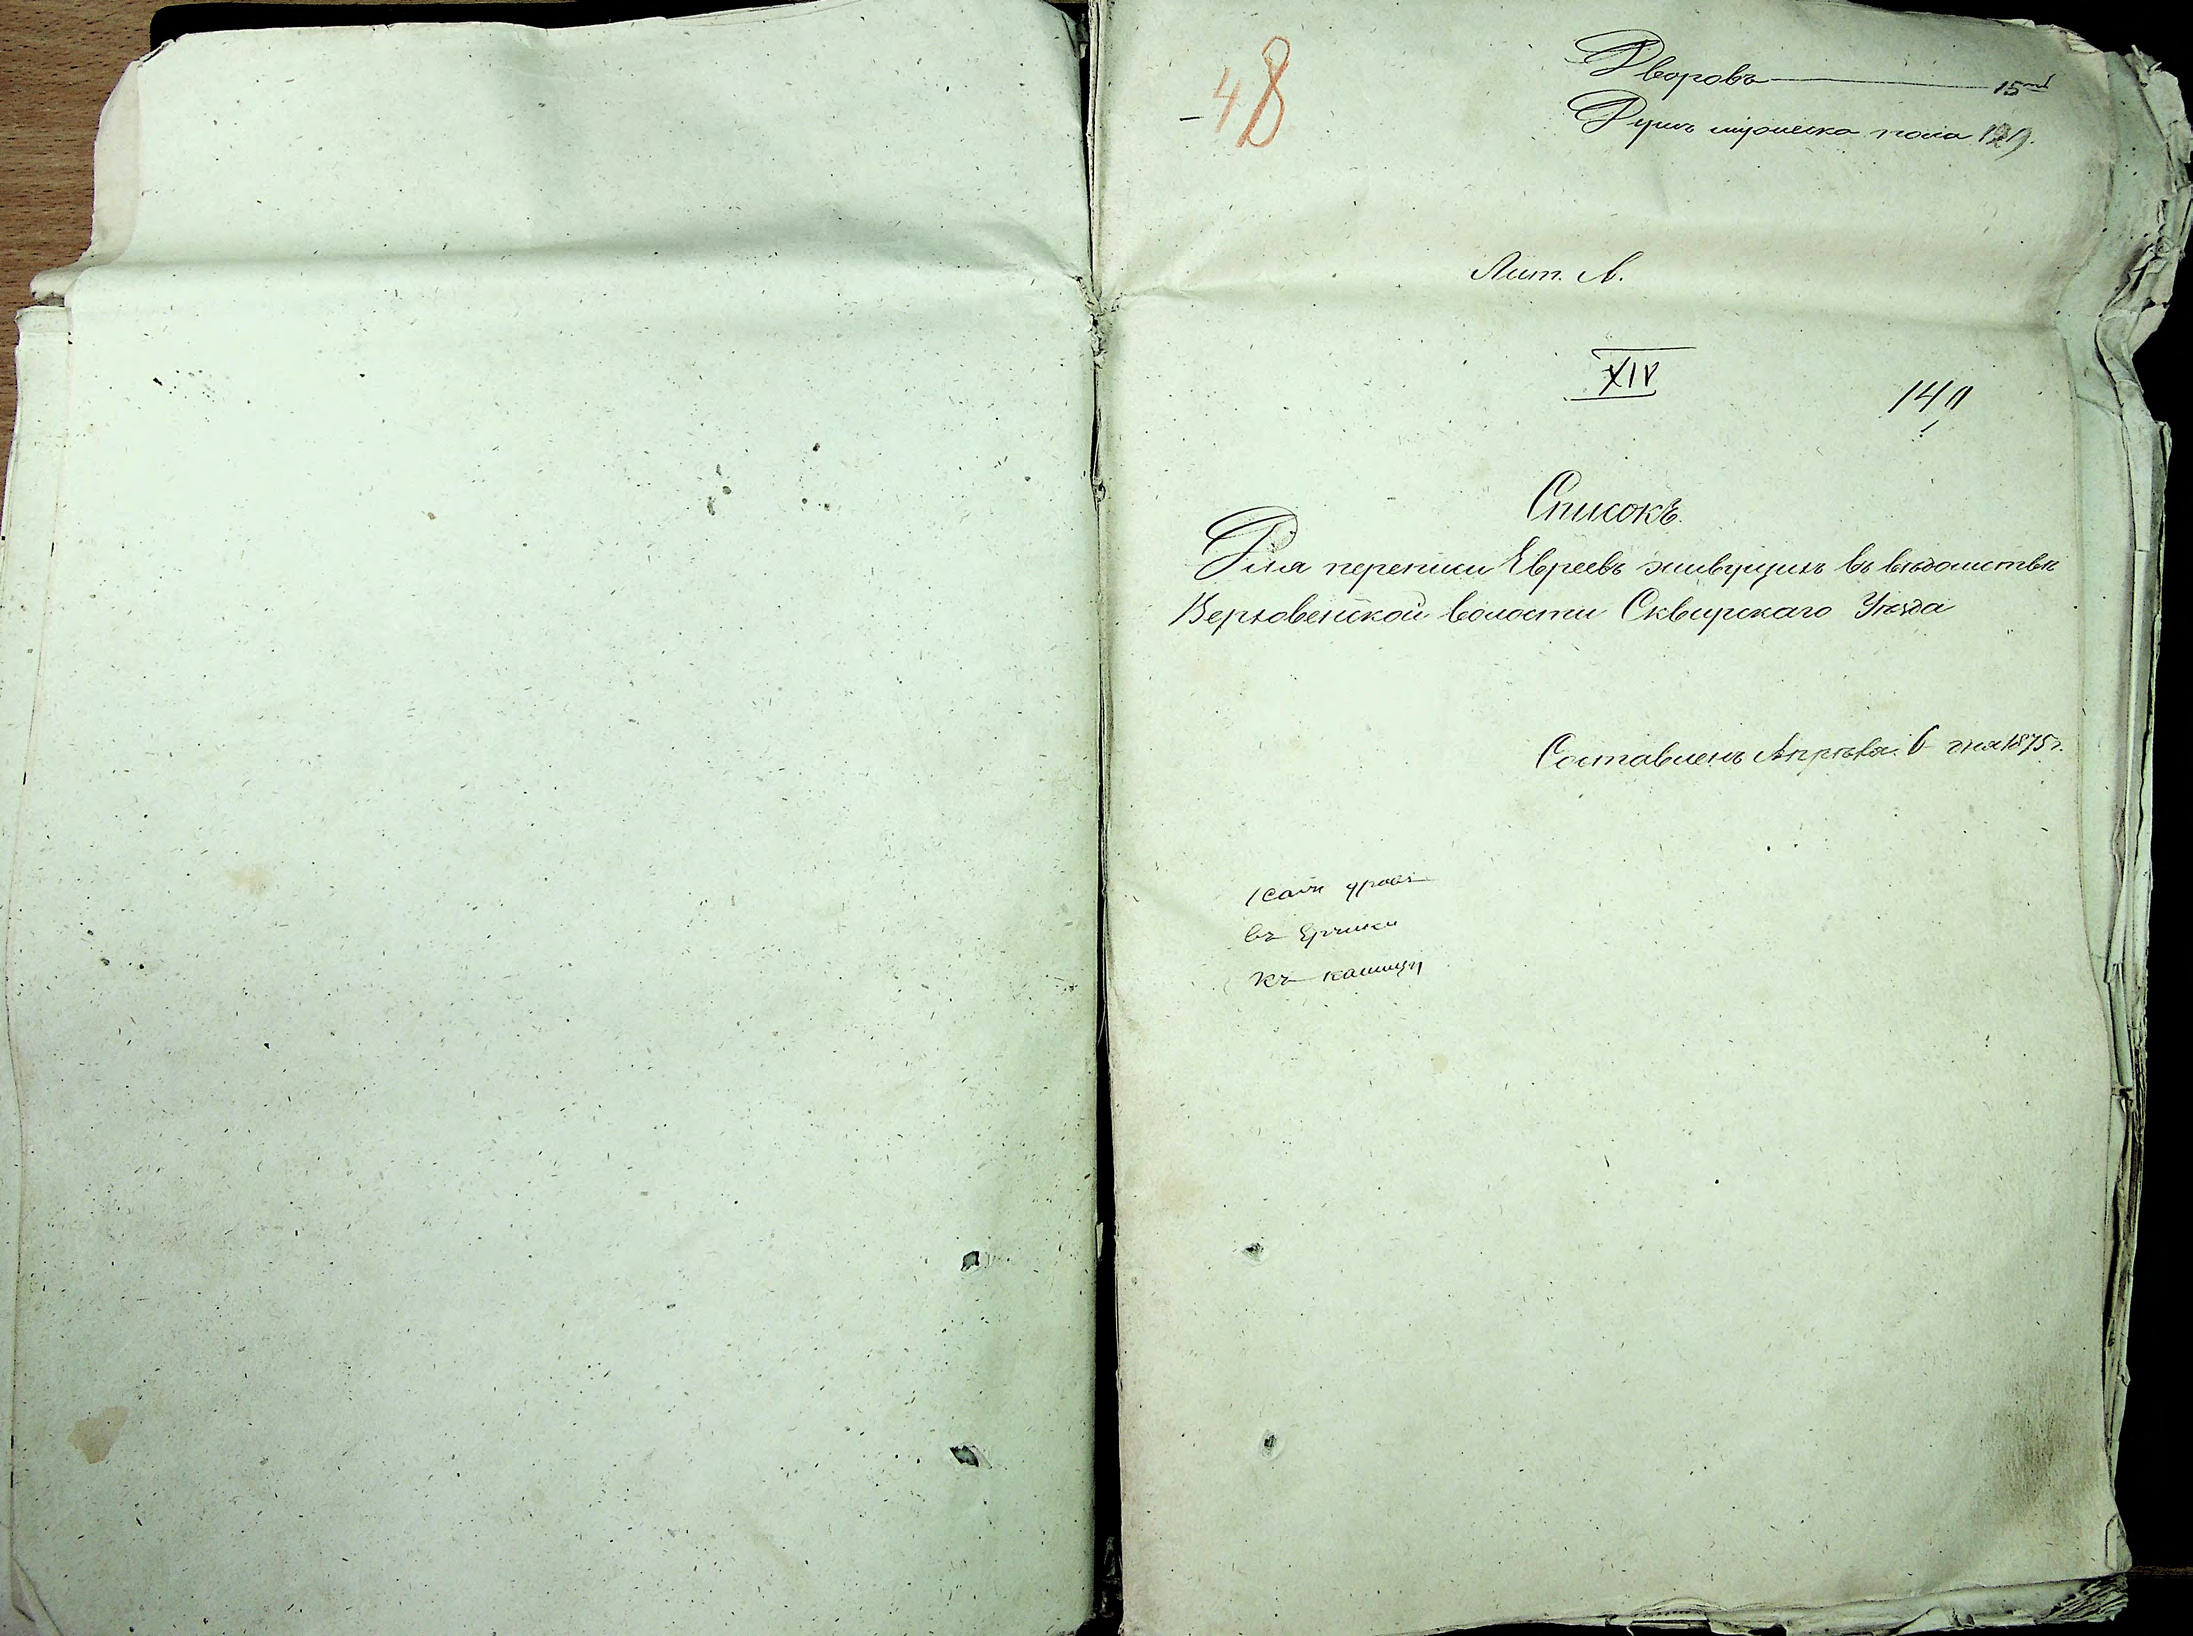 48
Дворовъ 15
Душъ мужеска пола
Лит. А.
XIV
Списокъ.
Для переписи Евреевъ живущихъ въ вѣдомствѣ
Верховенской волости Сквирскаго Уѣзда
Составленъ Апрѣля 6 дня 1875 г.
въ Ерчики
къ